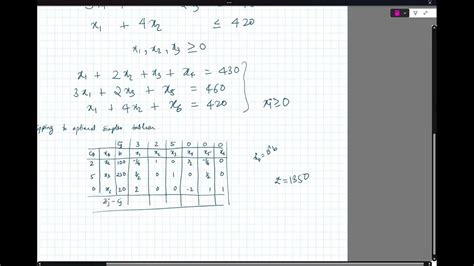 x₁ + 4x₂ ≤ 420
x₁, x₂, x₃ ≥ 0
x₁ + 2x₂ + x₃ + x₄ = 430
3x₁ + 2x₃ + x₅ = 460
x₁ + 4x₂ + x₆ = 420
xⱼ ≥ 0
to optimal simplex tableau
Cj 3 2 5 0 0 0
x₁ x₂ x₃ x₄ x₅ x₆
2 x₂ 100 -1/4 1 0 1/2 -1/4 0
5 x₃ 230 3/2 0 1 0 1/2 0
0 20 2 0 0 -2 1 1
zj - cj
z = 1350